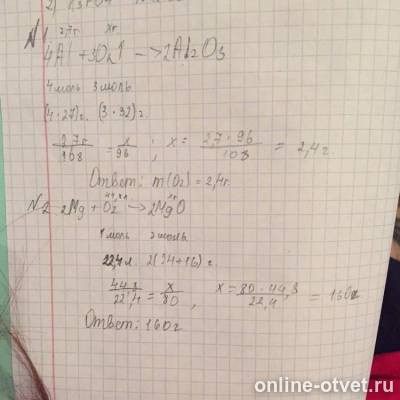 2) K3PO4
N1 2,7г xг
4Al + 3O2 —> 2Al2O3
4 моль 3 моль
(4·27)г. (3·32)г.
2,7г/108 = x/96 ; x = 2,7·96/108 = 2,4г.
Ответ: m(O2) = 2,4г.
44,8л xг
N2 2Mg + O2 —> 2MgO
1 моль 2 моль
22,4л. 2(24+16)г
44,8/22,4 = x/80 , x = 80·44,8/22,4 = 160г
Ответ: 160г
online-otvet.ru